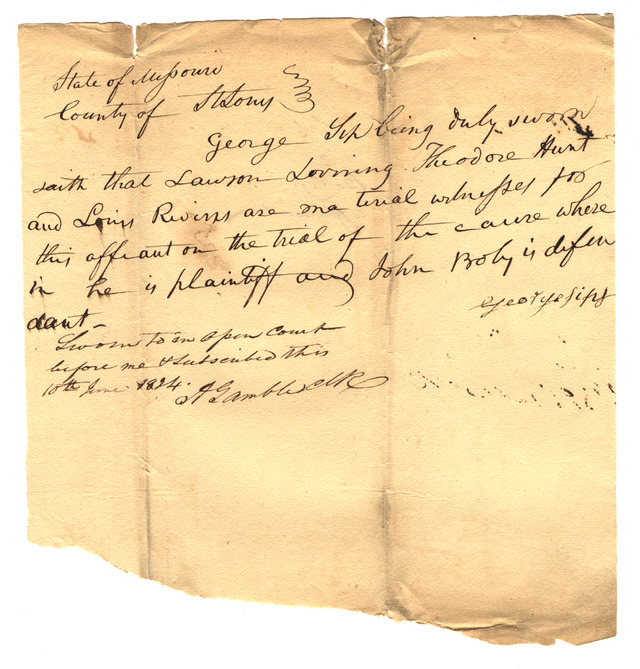 State of Missouri
County of St Louis
George Sip being duly sworn
saith that Lawson Lovining Theodore Hunt
and Louis Rivierps are ma terial witnesses for
this affiant on the trial of the cause where
in he is plaintiff and John Boby is defen
dant -
Sworn to in open Court
before me & subscribed this
10th June 1824.
A Gamble clk
George Sips